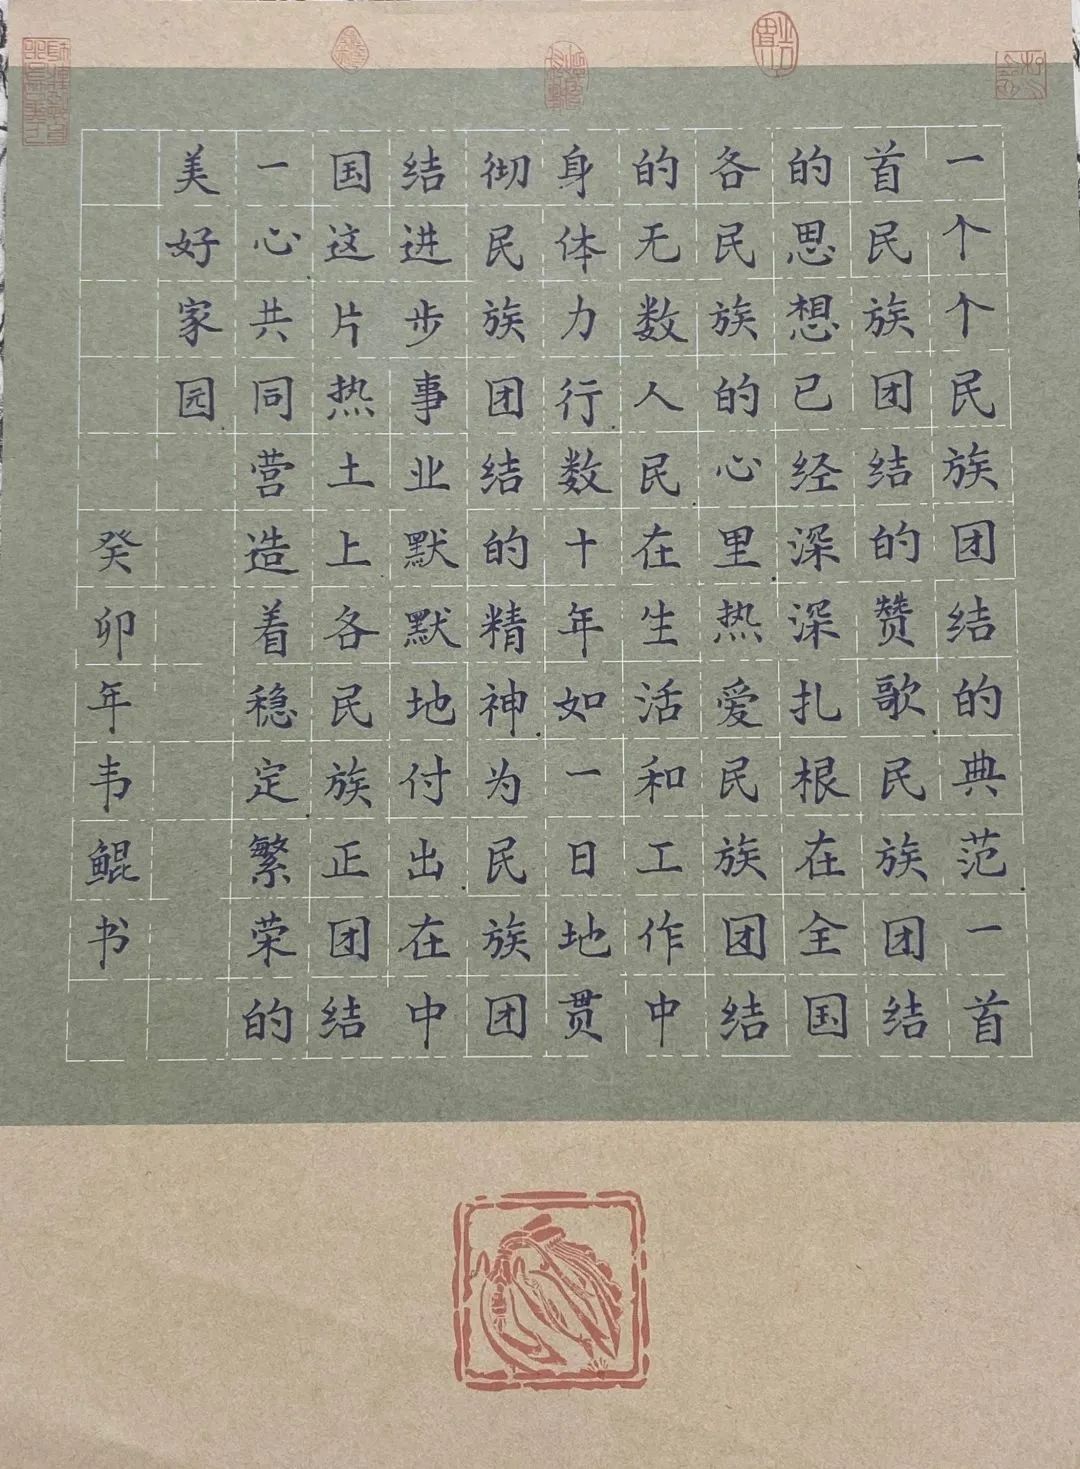 一个个民族团结的典范一首
首民族团结的赞歌民族团结
的思想已经深深扎根在全国
各民族的心里热爱民族团结
的无数人民在生活和工作中
身体力行数十年如一日地贯
彻民族团结的精神为民族团
结进步事业默默地付出在中
国这片热土上各民族正团结
一心共同营造着稳定繁荣的
美好家园
癸卯年韦鲲书